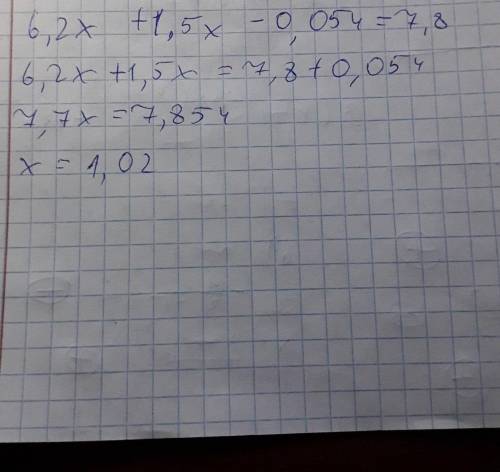 6,2x +1,5x -0,054=7,8
6,2x+1,5x=7,8+0,054
7,7x=7,854
x=1,02